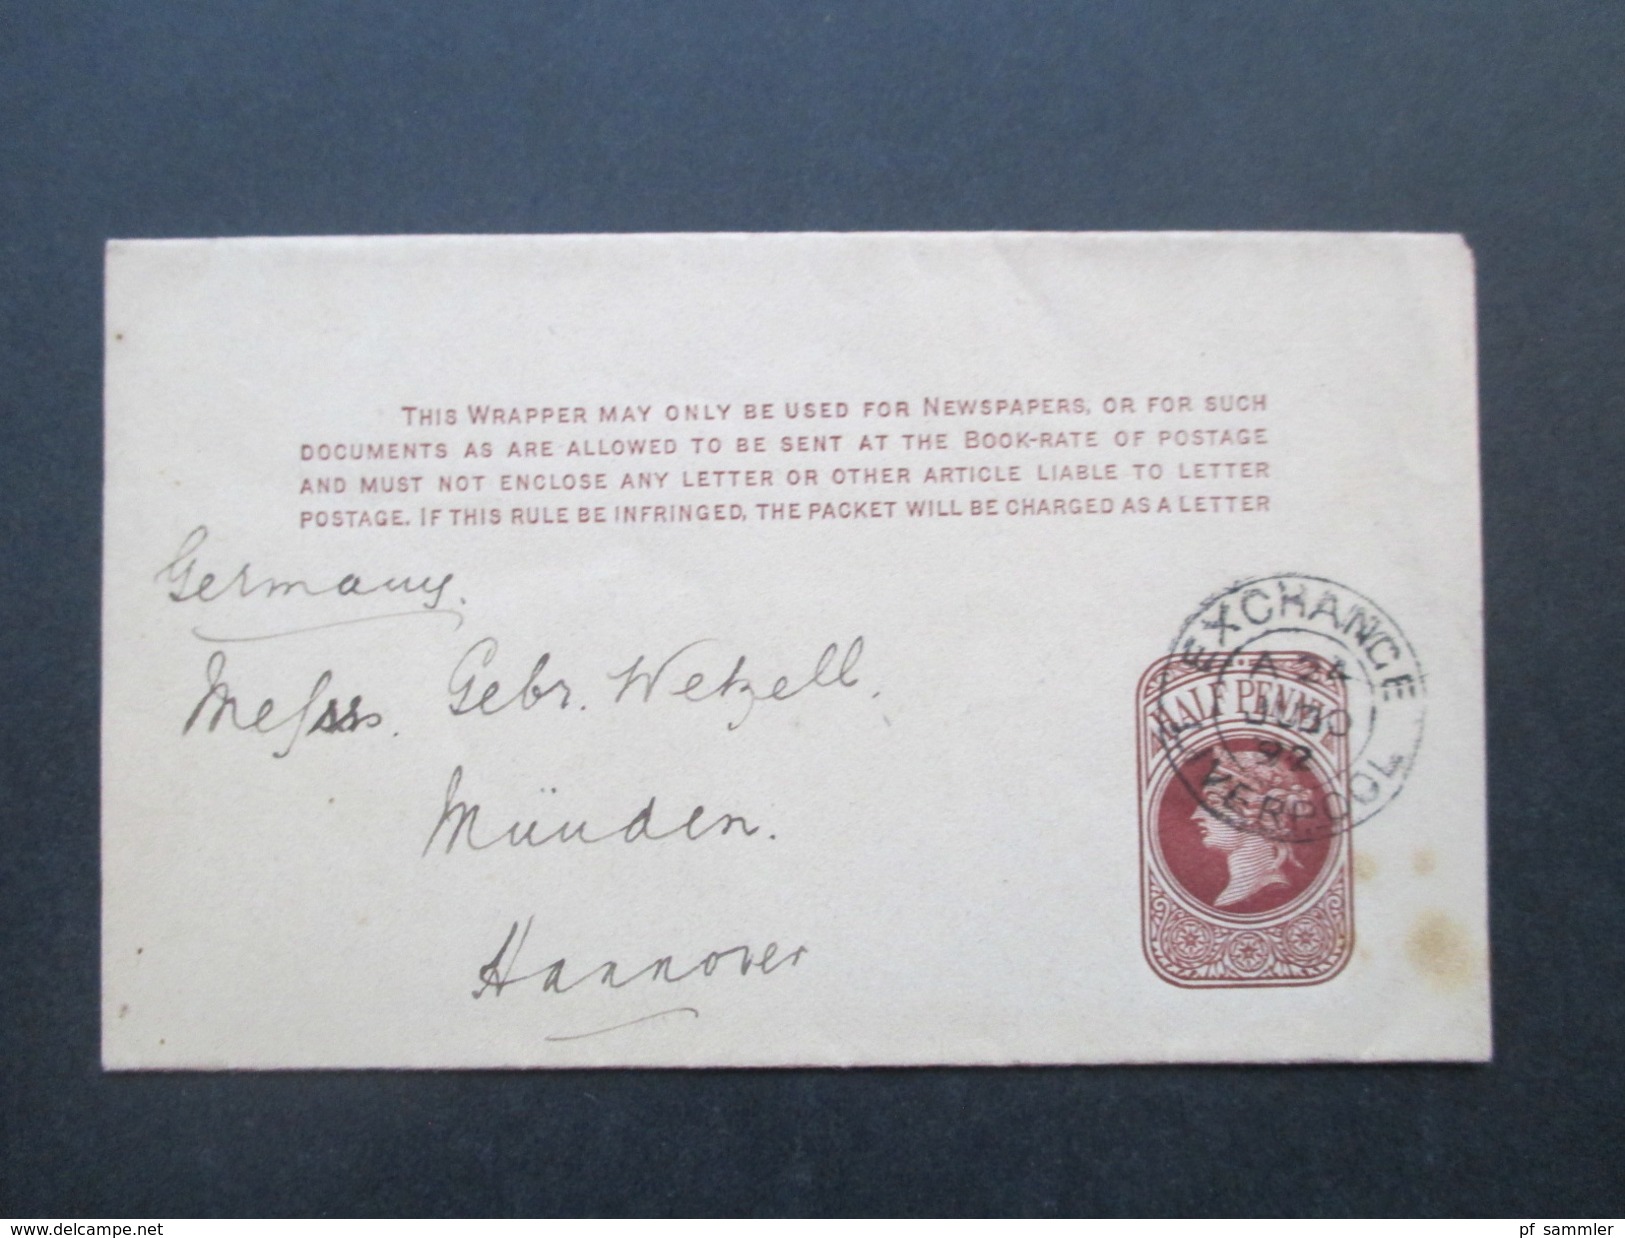 THIS WRAPPER MAY ONLY BE USED FOR NEWSPAPERS, OR FOR SUCH
DOCUMENTS AS ARE ALLOWED TO BE SENT AT THE BOOK-RATE OF POSTAGE
AND MUST NOT ENCLOSE ANY LETTER OR OTHER ARTICLE LIABLE TO LETTER
POSTAGE. IF THIS RULE BE INFRINGED, THE PACKET WILL BE CHARGED AS A LETTER
Germany.
Messrs. Gebr. Wetzell.
Münden.
Hannover
EXCHANGE
A 24
92
LIVERPOOL
HALF PENNY
www.delcampe.net
pf_sammler